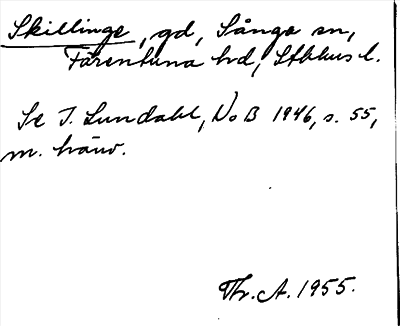 Skillinge, gd, Sånga sn,
Färentuna hd, Sthlms l.
Se I. Lundahl, NoB 1946, s. 55,
m. hänv.
Th. A. 1955.